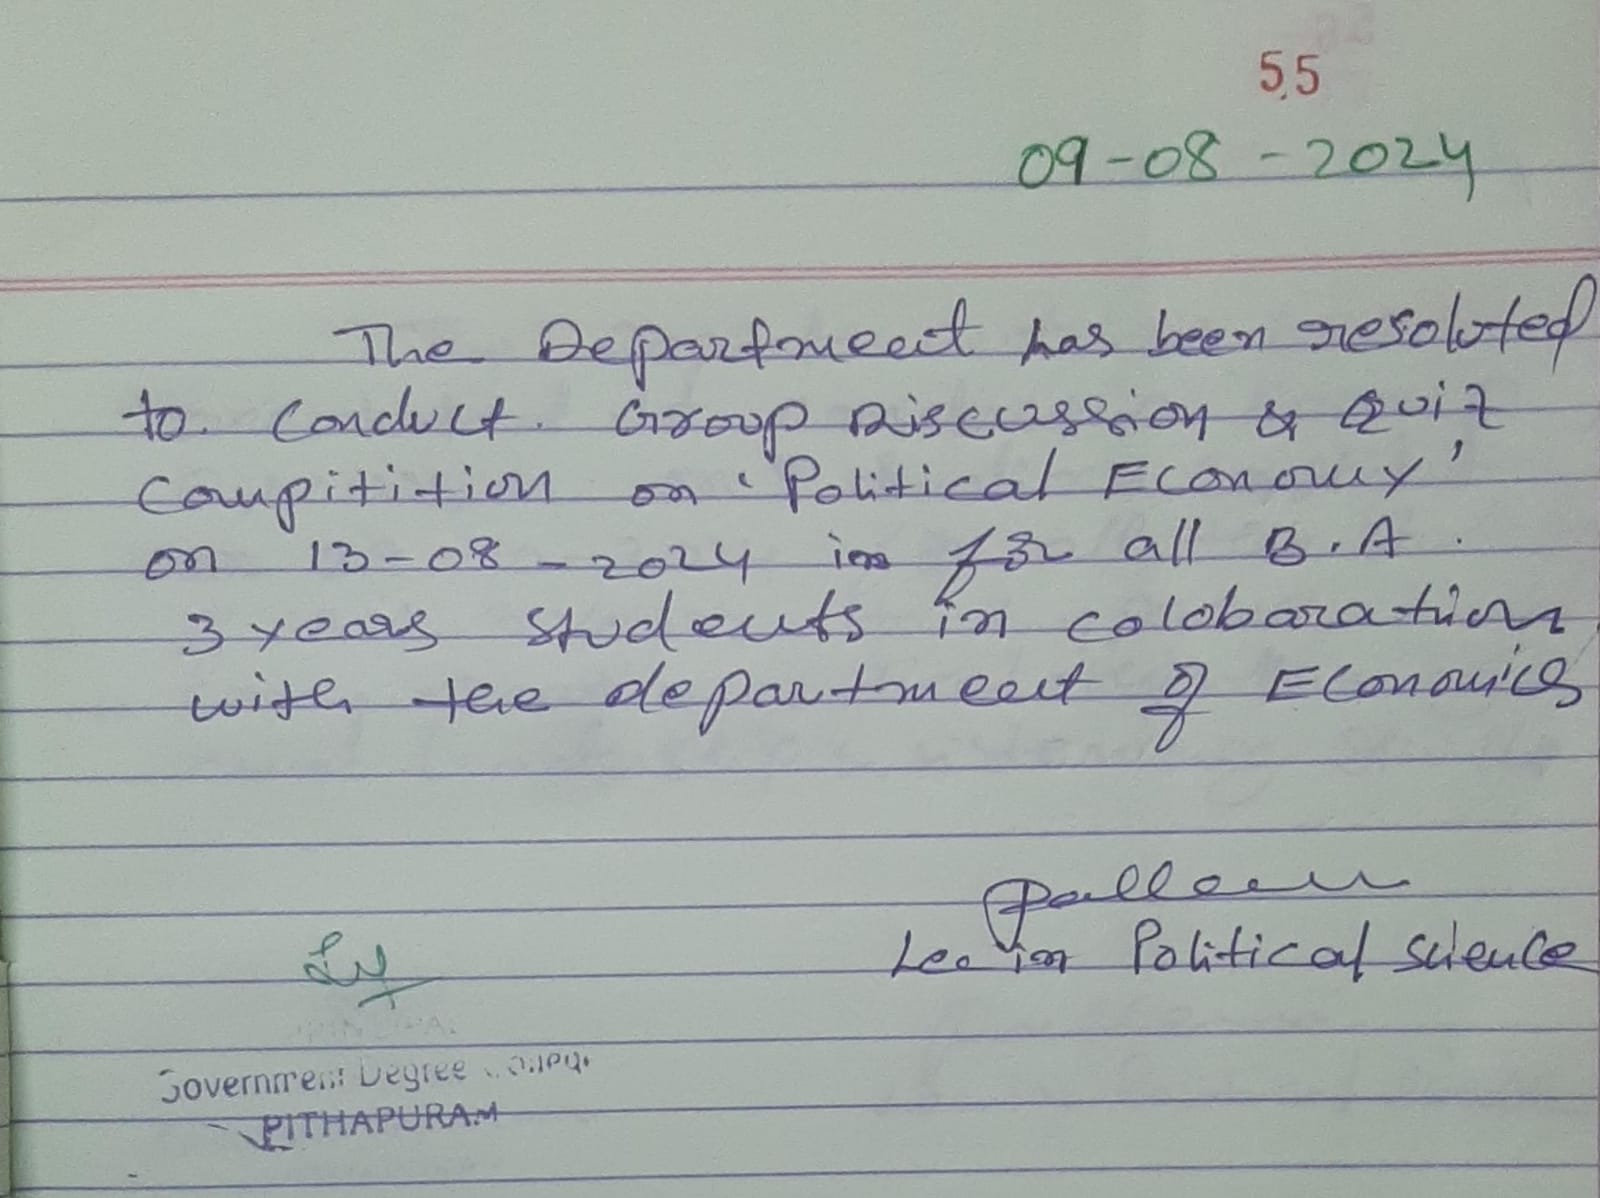 55
09-08-2024
The Department has been resoluted
to conduct Group Discussion & Quiz
Compitition on 'Political Economy'
on 13-08-2024 in for all B.A.
3 years students in colobaration
with the department of Economics
Lec in Political science
PRINCIPAL
Government Degree College
PITHAPURAM